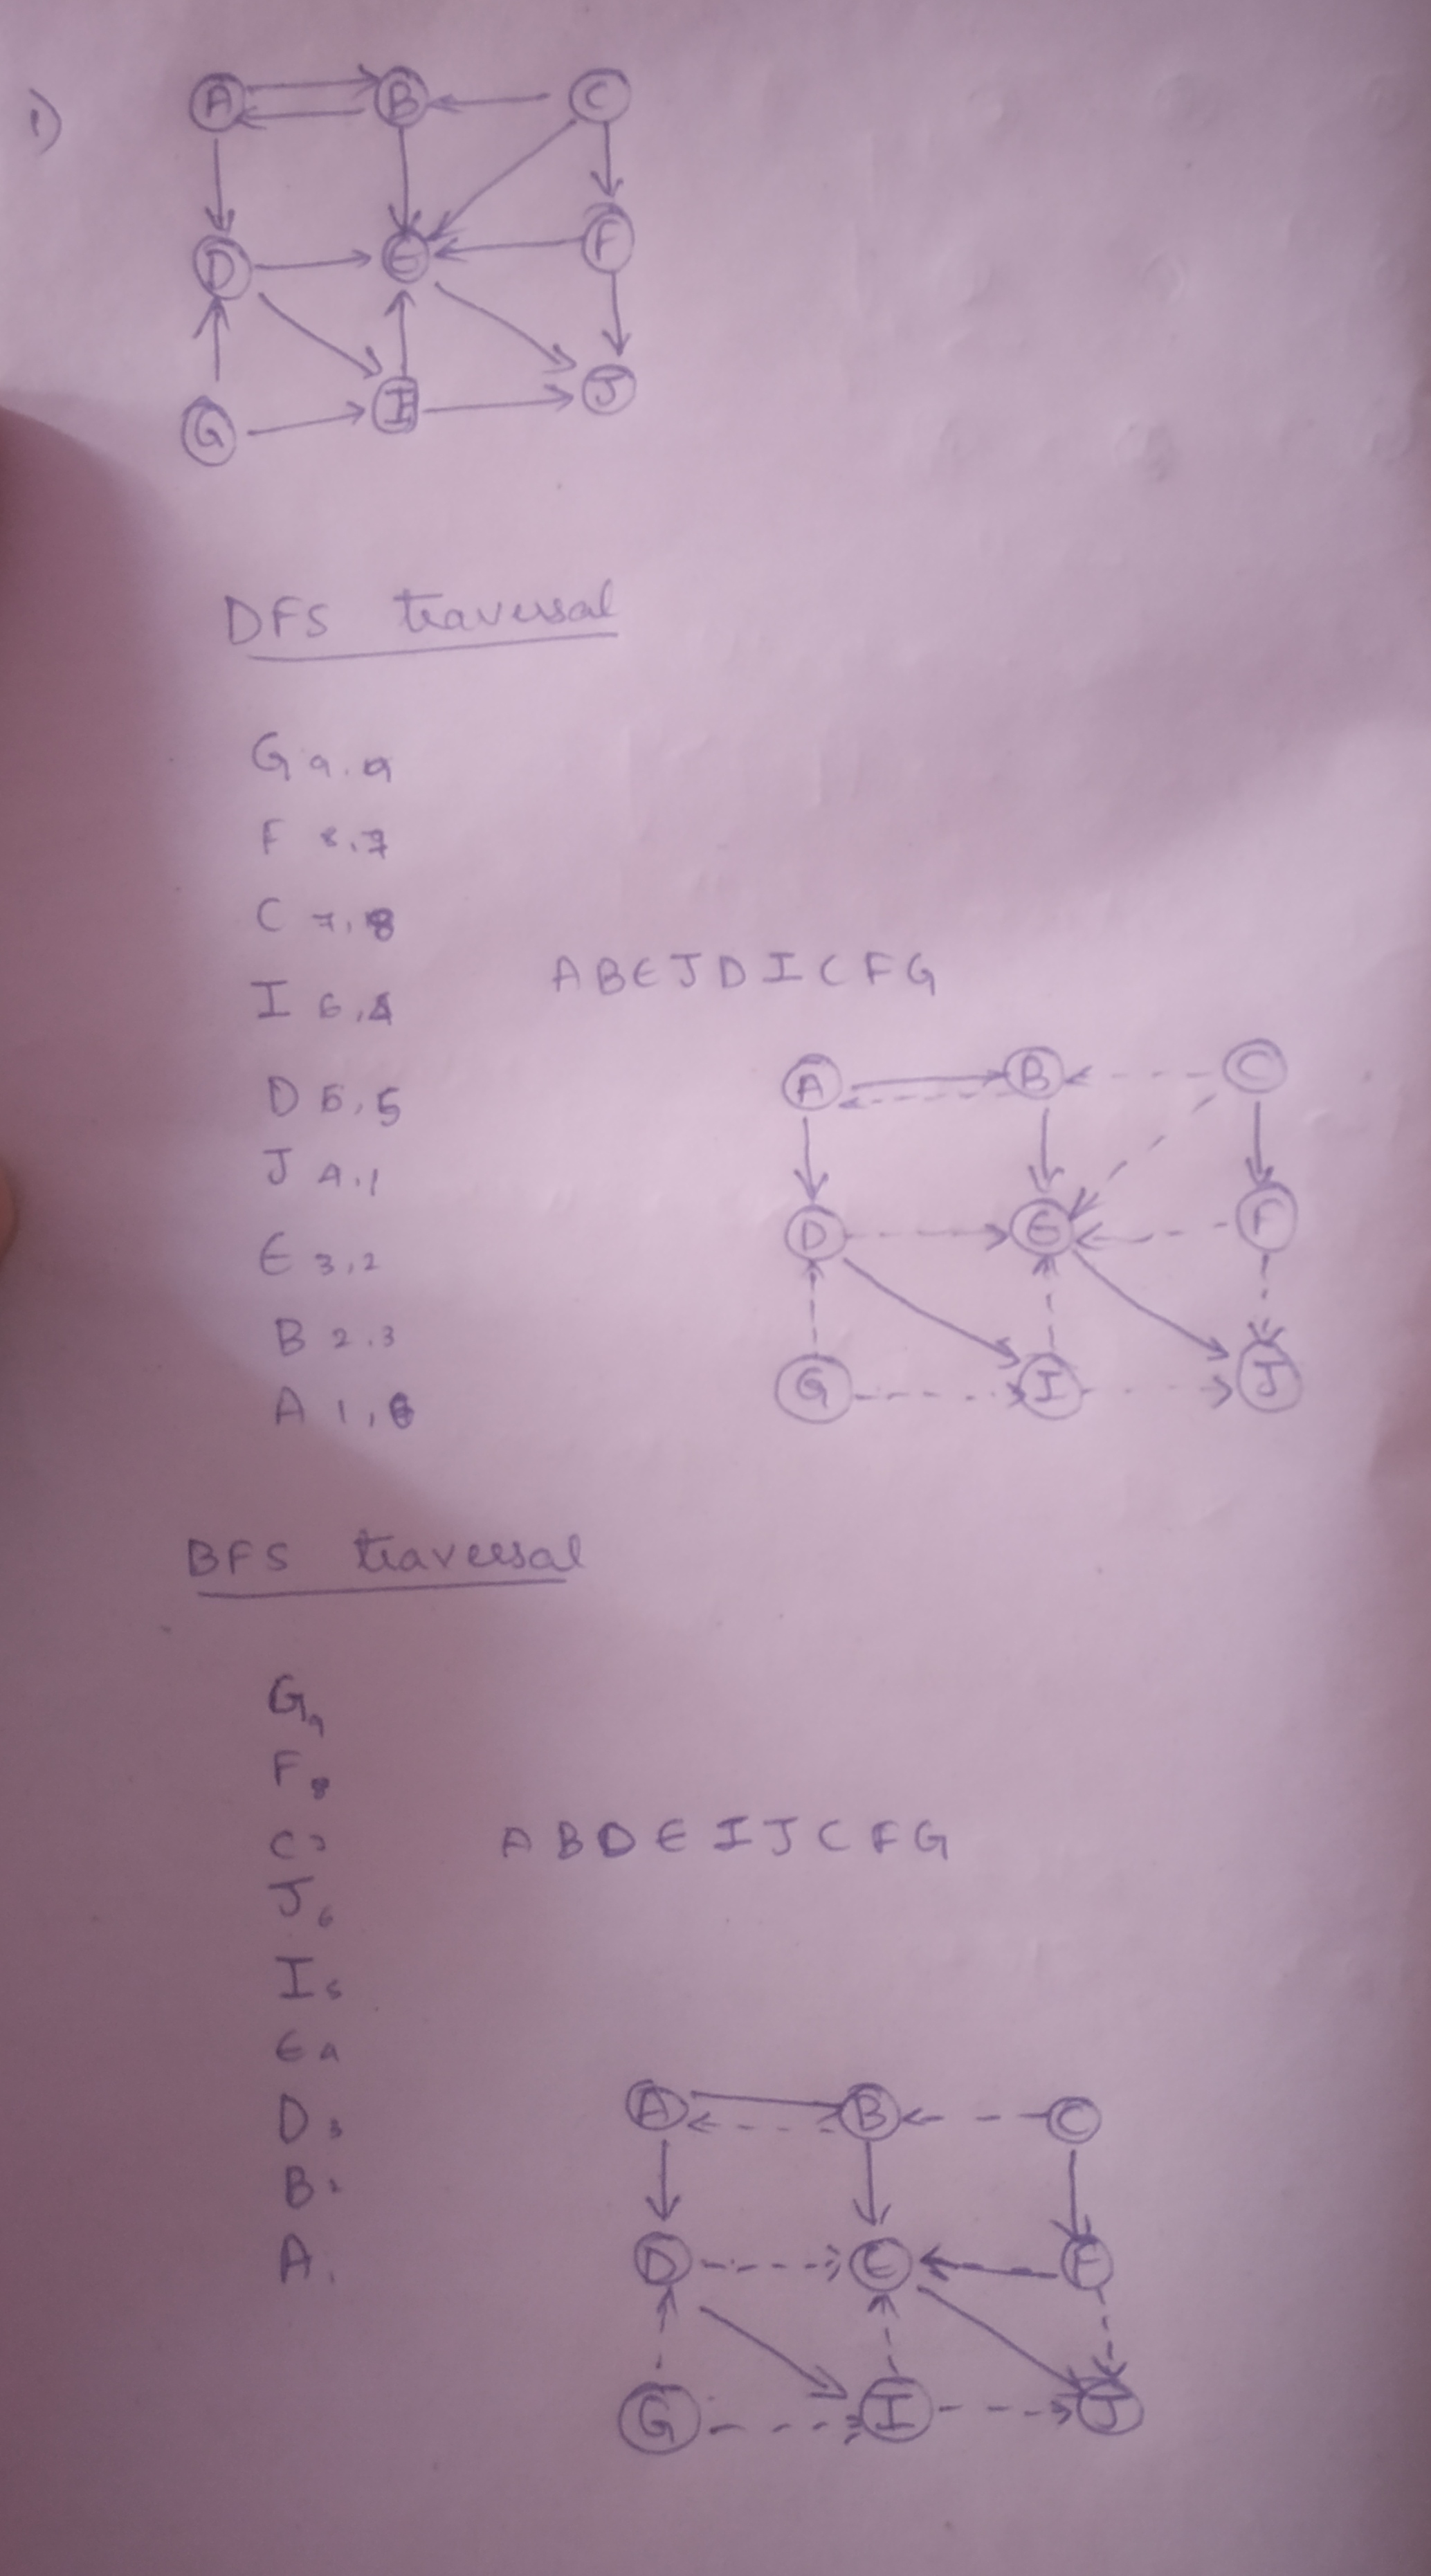 1)
A B C
D E F
G I J
DFS traversal
G 9,9
F 8,7
C 7,8
I 6,4
D 5,5
J 4,1
E 3,2
B 2,3
A 1,6
A B E J D I C F G
A B C
D E F
G I J
BFS traversal
G 9
F 8
C 7
J 6
I 5
E 4
D 3
B 2
A 1
A B D E I J C F G
A B C
D E F
G I J